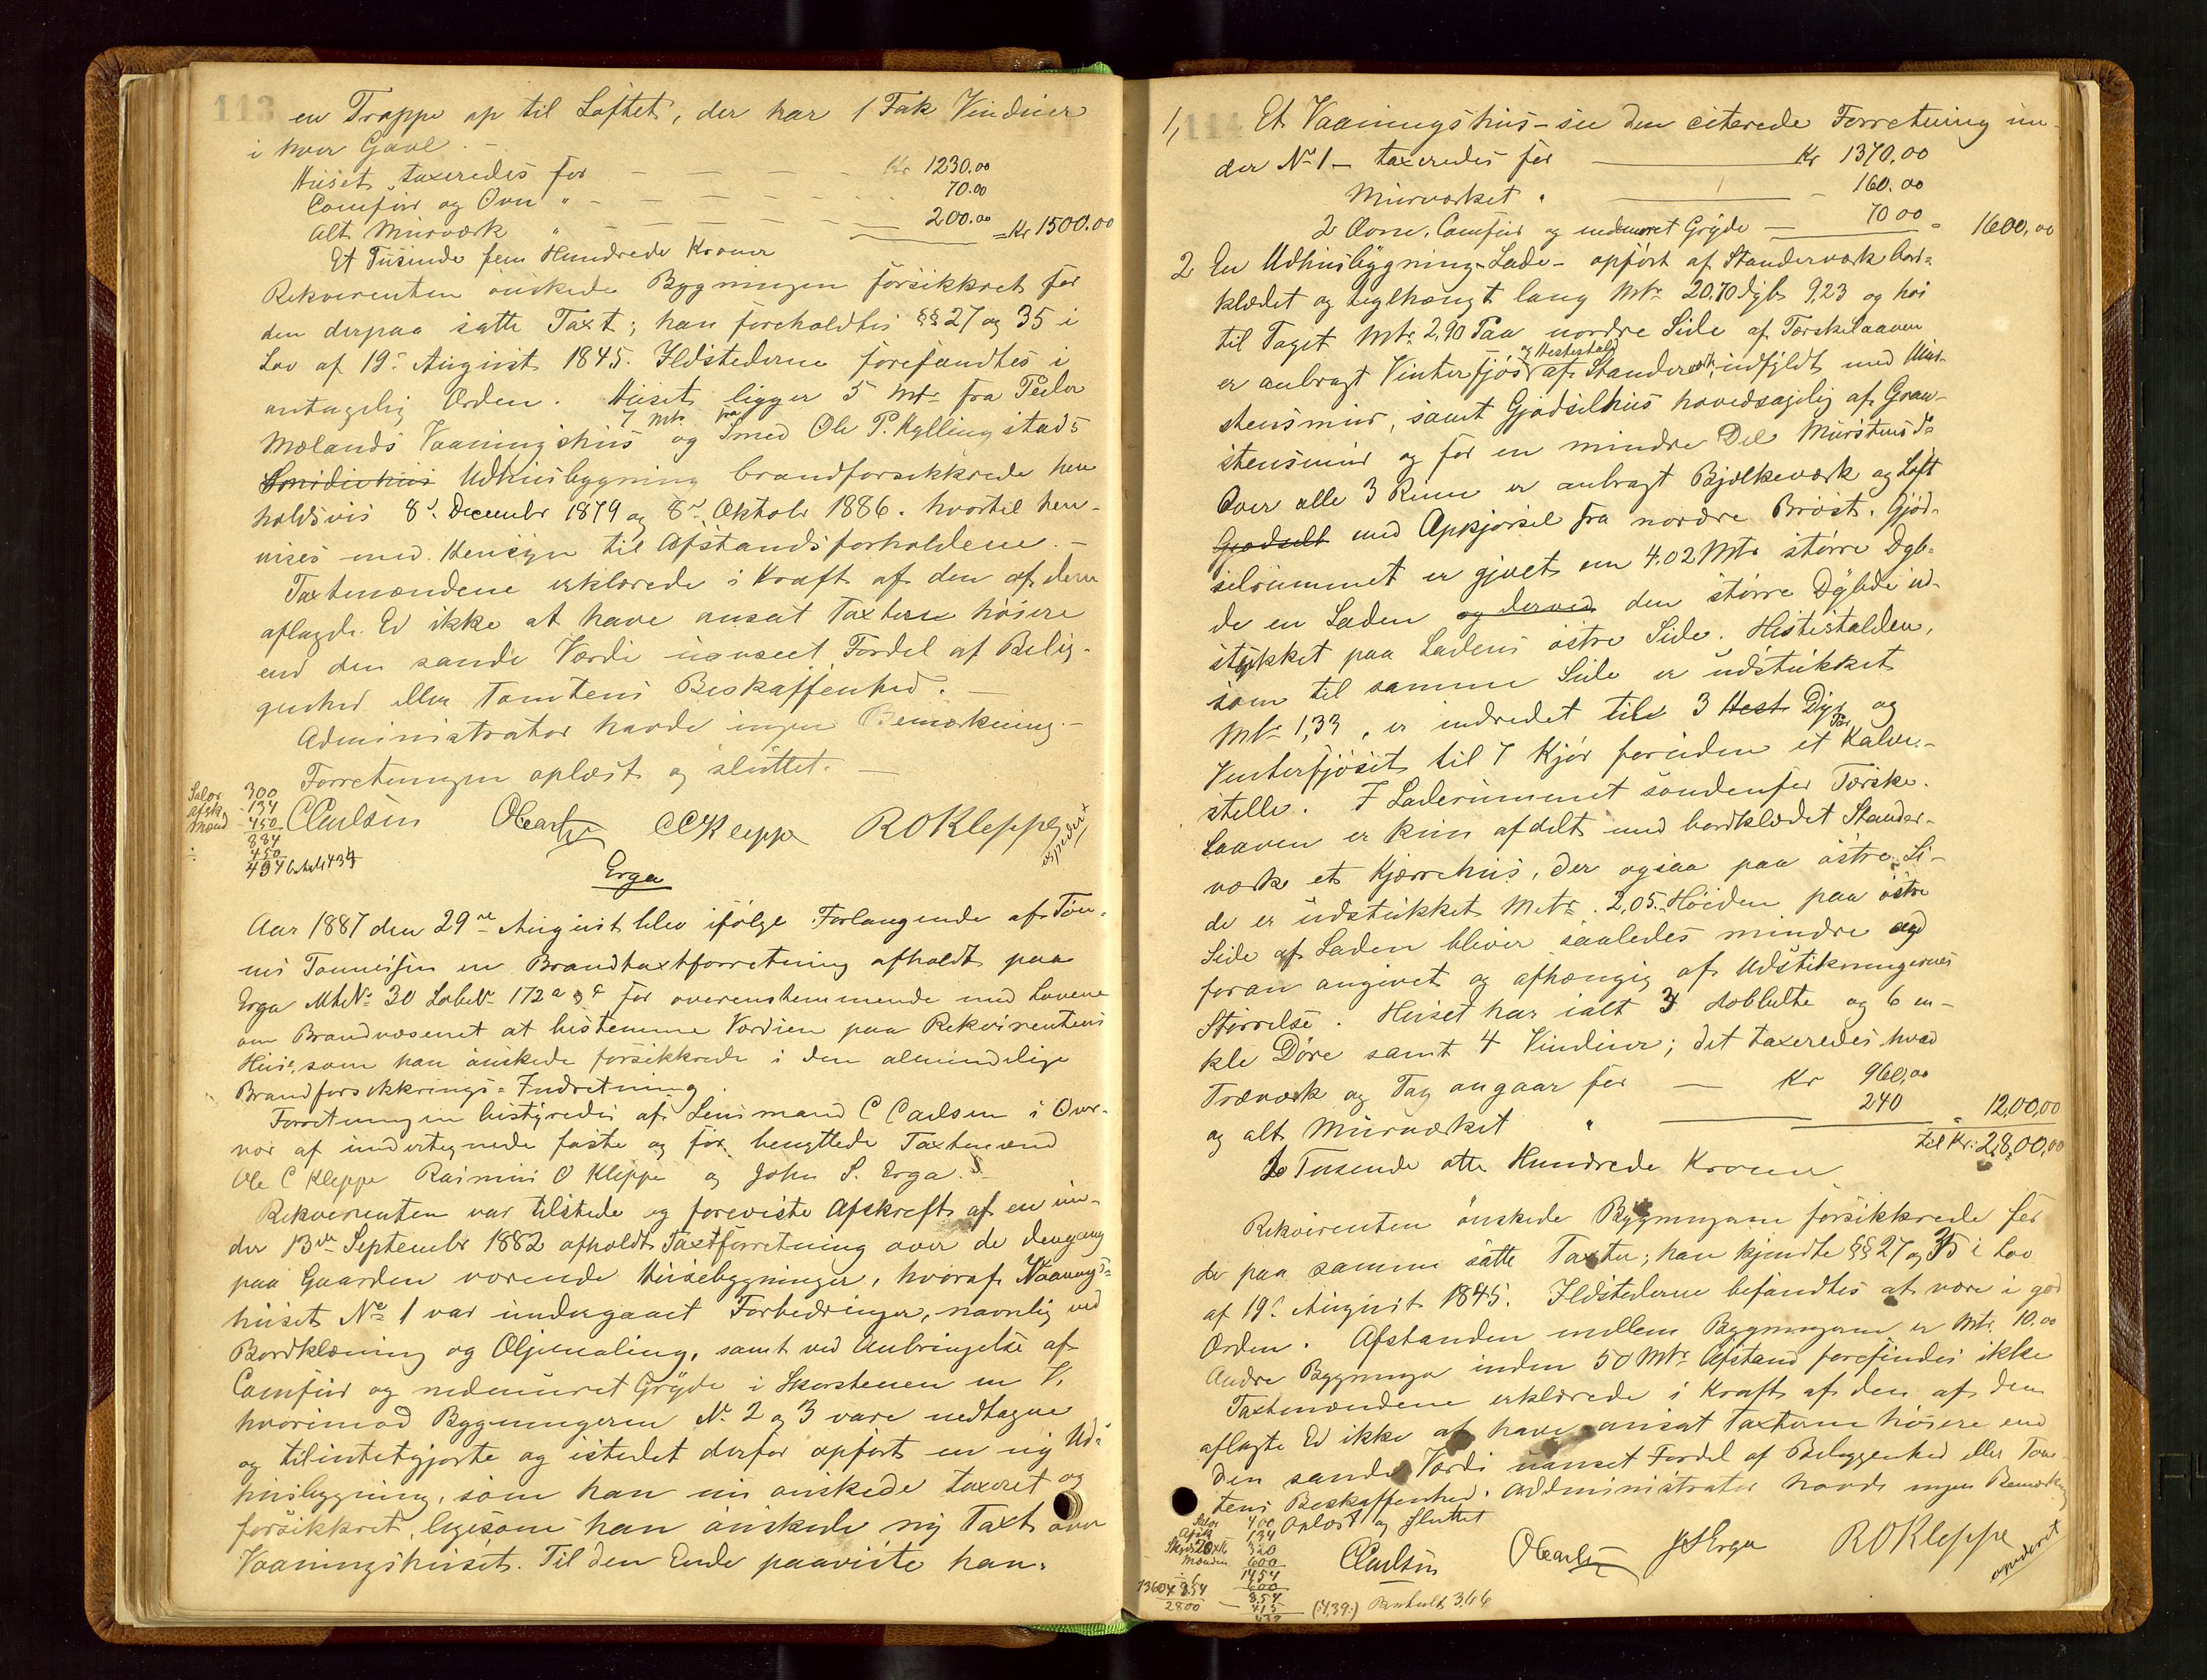 113
en Trappe op til Loftet, der har 1 Fak Vinduer
i hver Gavl. -
Huset taxeredes for - - - - Kr 1230.00
Comfur og Ovn " - - - - 70.00
Alt Murværk " - - - - 200.00 = Kr 1500.00
Et Tusinde fem Hundrede Kroner
Rekverenten önskede Bygningen forsikkret for
den derpaa satte Taxt; han foreholdtes §§ 27 og 35 i
Lov af 19de August 1845. Ildstederne forefandtes i
antagelig Orden. Huset ligger 5 Mtr fra Peder
Mælands Vaaningshus og 7 Mtr. fra Smed Ole P. Kyllingstads
Smidiehus Udhusbygning brandforsikkrede hen
holdsvis 8de December 1879 og 8de Oktober 1886. hvortil hen-
vises med Hensyn til Afstandsforholdene. -
Taxtmændene erklærede i Kraft af den af dem
aflagde Ed ikke at have ansat Taxterne höiere
end den sande Værdi uanseet Fordel af Belig-
genhed eller Tomtens Beskaffenhed. -
Administrator havde ingen Bemærkning. -
Forretningen oplæst og sluttet. -
Salær 300
Afsk - 134
Mænd - 450
884
450
434
CCarlsen OCarlsen OCKleppe ROKleppe
expederet
Erga
Aar 1887 den 29de August blev ifölge Forlangende af Tön-
nes Tönnesen en Brandtaxtforretning afholdt paa
Erga MtrNo 30 LobeNo 172a og c for overenstemmende med Lovene
om Brandvæsenet at bestemme Værdien paa Rekvirentens
Huse, som han önskede forsikkrede i den almindelige
Brandforsikkrings=Indretning.
Forretningen bestyredes af Lensmand C Carlsen i Over-
vær af undertegnede faste og för benyttede Taxtmænd
Ole C Kleppe Rasmus O Kleppe og John S. Erga. -
Rekverenten var tilstede og foreviste Afskreft af en un-
der 13de September 1882 afholdt Taxtforretning over de dengang
paa Gaarden værende Husebygninger, hvoraf Vaanings=
huset No 1 var undergaaet Forbedringer, navnlig ved
Bordklæning og Oljemaling, samt ved Anbringelse af
Comfur og nedmuret Gryde i Skorstenen m V.
hvorimod Bygningerne No 2 og 3 vare nedtagne
og tilintetgjorte og istedet derfor opfört en ny Ud=
husbygning, som han nu önskede taxeret og
forsikkret, ligesom han önskede ny Taxt over
Vaaningshuset. Til den Ende paaviste han:
114
1, Et Vaaningshus - see den citerede Forretning un-
der No 1 - taxeredes for - Kr 1370.00
Murværket " - 160.00
2 Ovne, Comfur og indmuret Gryde - 70 00 = 1600,00
2 En Udhusbygning - Lade - opfört af Standerværk bord=
klædet og teglhængt lang Mtr 20,70 dyb 9,23 og höi
til Taget Mtr. 2,90 Paa nordre Side af Tærskelaaven
er anbragt Vinterfjös og Hestestald af Standerværk, indfyldt med Mur-
stensmur, samt Gjödselhus hovedsagelig af Graa-
stensmur og for en mindre Del Murstens Do
Over alle 3 Rum er anbragt Bjælkeværk og Loft
Gjødselt med Opkjörsel fra nordre Bröst. Gjöd-
selrummet er gjort em 4,02 Mtr större Dyb-
de en Laden og derved den större Dybde ud-
stykket paa Ladens östre Side. Hestestalden,
som til samme Side er udstukket
Mtr 1,33, er indredet til 3 Hest Dyr og
Vinterfjöset til 7 Kjör foruden et Par Kalve-
stelle. I Laderummet söndenfor Tærske-
Laaven er kun afdelt med bordklædet Stander-
værk et Kjærrehus, der ogsaa paa östre Si-
de er udstukket Metr. 2,05. Höiden paa östre
Side af Laden bliver saaledes mindre end
foran angivet og afhængig af Udstikningernes
Störrelse. Huset har ialt 3 dobbelte og 6 en-
kle Döre samt 4 Vinduer; det taxeredes hvad
Træværk og Tag angaar for - Kr 960,00
og alt Murværket " - 240 = 1200,00
Til Kr: 2800,00
To Tusende otte Hundrede Kroner
Rekvirenten önskede Bygningerne forsikkrede for
de paa samme satte Taxter; han kjendte §§ 27 og 35 i Lov
af 19de August 1845. Ildstederne befandtes at være i god
Orden. Afstanden mellem Bygningerne er Mtr. 10.00
Andre Bygninger inden 50 Mtr Afstand forefindes ikke
Taxtmændene erklærede i Kraft af den af dem
aflagte Ed ikke at have ansat Taxterne höiere end
den sande Værdi uanset Fordel af Beliggenhed eller Tom-
tens Beskaffenhed. Administrator havde ingen Bemærkning
Oplæst og Sluttet
Salær 400
Afsk 134
Skyds 320
Mænden 600
1454
600
854
415
439 (:439:)
2800
CCarlsen OCarlsen JSErga ROKleppe
expederet